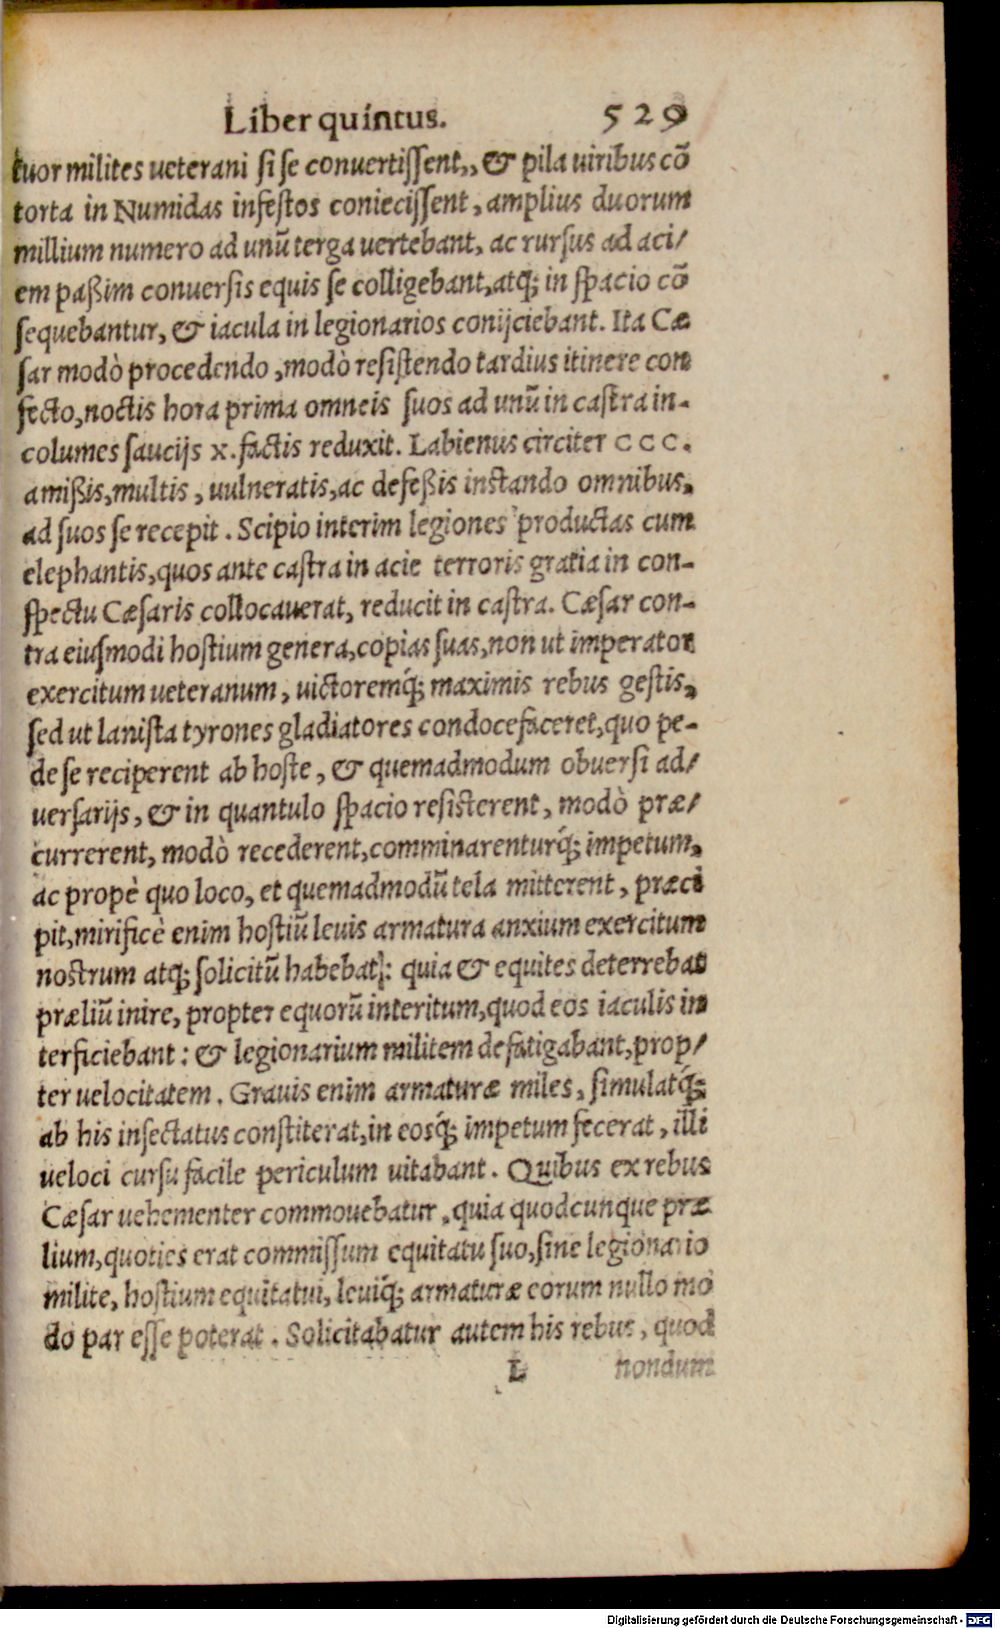 Liber quintus. 529
tuor milites ueterani si se conuertissent,, & pila uiribus cõ
torta in Numidas infestos coniecissent, amplius duorum
millium numero ad unũ terga uertebant, ac rursus ad aci/
em paßim conuersis equis se colligebant, atq; in spacio cõ
sequebantur, & iacula in legionarios conijciebant. Ita Cæ
sar modò procedendo, modò resistendo tardius itinere con
fecto, noctis hora prima omneis suos ad unũ in castra in-
columes saucijs x. factis reduxit. Labienus circiter CCC.
amißis, multis, uulneratis, ac defeßis instando omnibus,
ad suos se recepit. Scipio interim legiones productas cum
elephantis, quos ante castra in acie terroris gratia in con-
spectu Cæsaris collocauerat, reducit in castra. Cæsar con-
tra eiusmodi hostium genera, copias suas, non ut imperator
exercitum ueteranum, uictoremq́; maximis rebus gestis,
sed ut lanista tyrones gladiatores condocefaceret, quo pe-
de se reciperent ab hoste, & quemadmodum obuersi ad/
uersarijs, & in quantulo spacio resisterent, modò præ/
currerent, modò recederent, comminarenturq́; impetum,
ac propè quo loco, et quemadmodũ tela mitterent, præci
pit, mirificè enim hostiũ leuis armatura anxium exercitum
nostrum atq; solicitũ habebat: quia & equites deterrebat
præliũ inire, propter equorũ interitum, quod eos iaculis in
terficiebant: & legionarium militem defatigabant, prop/
ter uelocitatem. Grauis enim armaturæ miles, simulatq́;
ab his insectatus constiterat, in eosq́; impetum fecerat, illi
ueloci cursu facile periculum uitabant. Quibus ex rebus
Cæsar uehementer commouebatur, quia quodcunque præ
lium, quoties erat commissum equitatu suo, sine legionario
milite, hostium equitatui, leuiq́; armaturæ eorum nullo mo
do par esse poterat. Solicitabatur autem his rebus, quod
L nondum
Digitalisierung gefördert durch die Deutsche Forschungsgemeinschaft - DFG